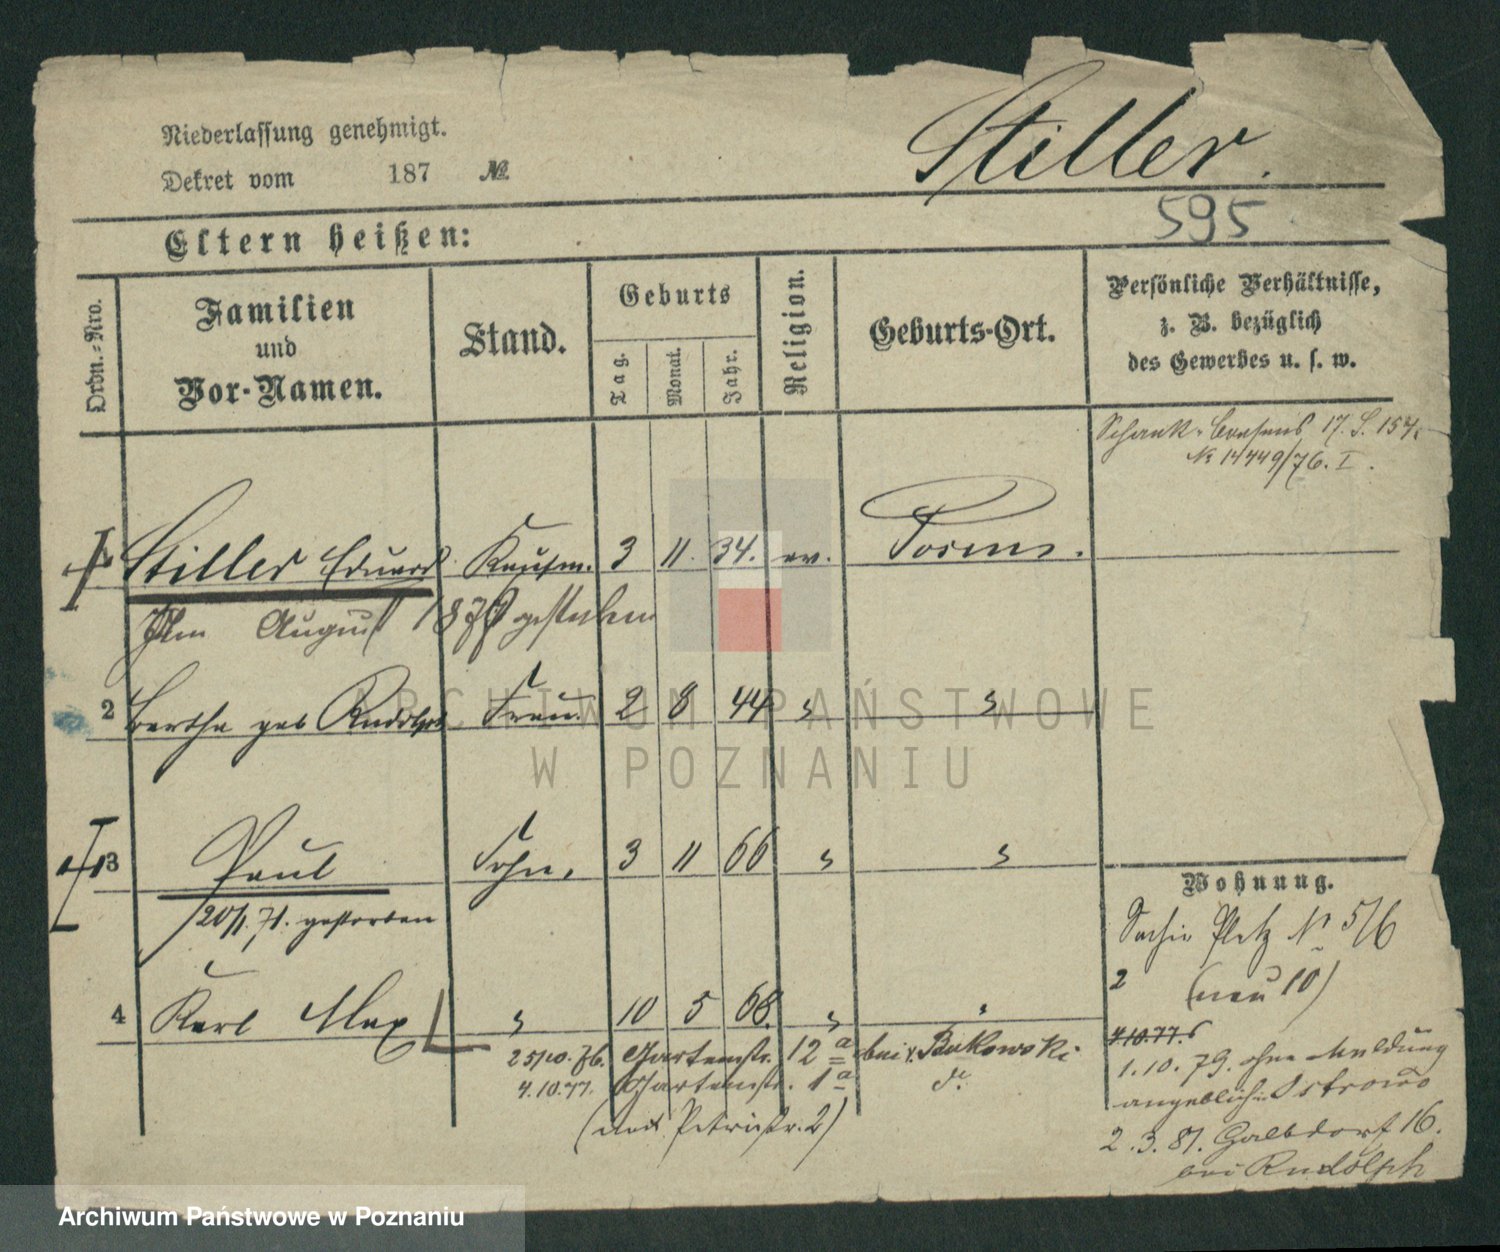 Niederlassung genehmigt.
Dekret vom 187 №
Stiller.
595
Eltern heißen:
Ordn.-Nro.
Familien
und
Vor-Namen.
Stand.
Geburts
Tag.
Monat.
Jahr.
Religion.
Geburts-Ort.
Persönliche Verhältnisse,
z. B. bezüglich
des Gewerbes u. s. w.
Schank-Consens 17. S. 154.
№ 14449/76. I.
Stiller Eduard Kaufm. 3 11. 34. ev. Posen.
August gestorben
2 Bertha geb Rudolph Frau. 2 8 44 " "
3 Paul Sohn. 3 11 66 " "
20/1. 71. gestorben
4 Karl Max " 10 5 68. " "
25/10. 76. Gartenstr. 12a bei Bukowski
4.10.77. Gartenstr. 1a do
(Petristr. 2)
Wohnung.
Platz № 5/6
2 (neu 10)
4.10.77.
1.10.79. ohne Meldung
angeblich in Ostrowo
2.3.81. Halbdorf 16.
bei Rudolph
ARCHIWUM PAŃSTWOWE
W POZNANIU
Archiwum Państwowe w Poznaniu